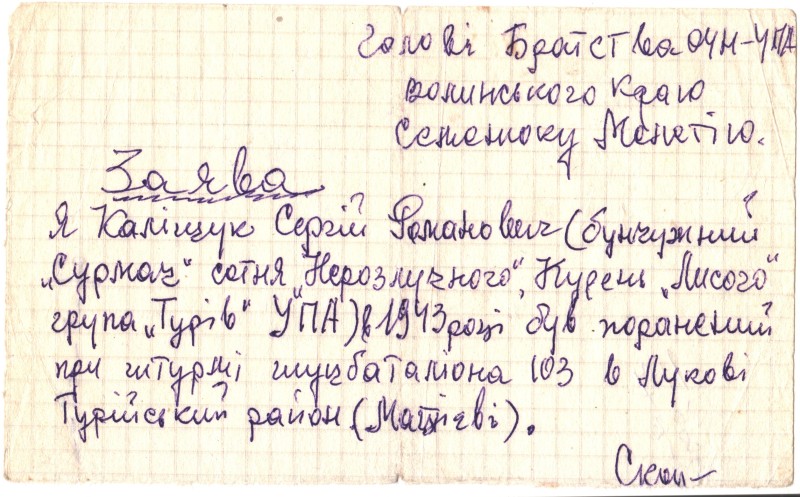 Голові Братства ОУН-УПА
волинського краю
Семенюку Мелетію.
Заява
Я Каліщук Сергій Романович (бунчужний
„Сурмач“ сотня „Нерозлучного“, Курень „Лисого“
група „Турів“ УПА) в 1943 році був поранений
при штурмі шуцбаталіона 103 в Лукові
Турійський район (Мацієві).